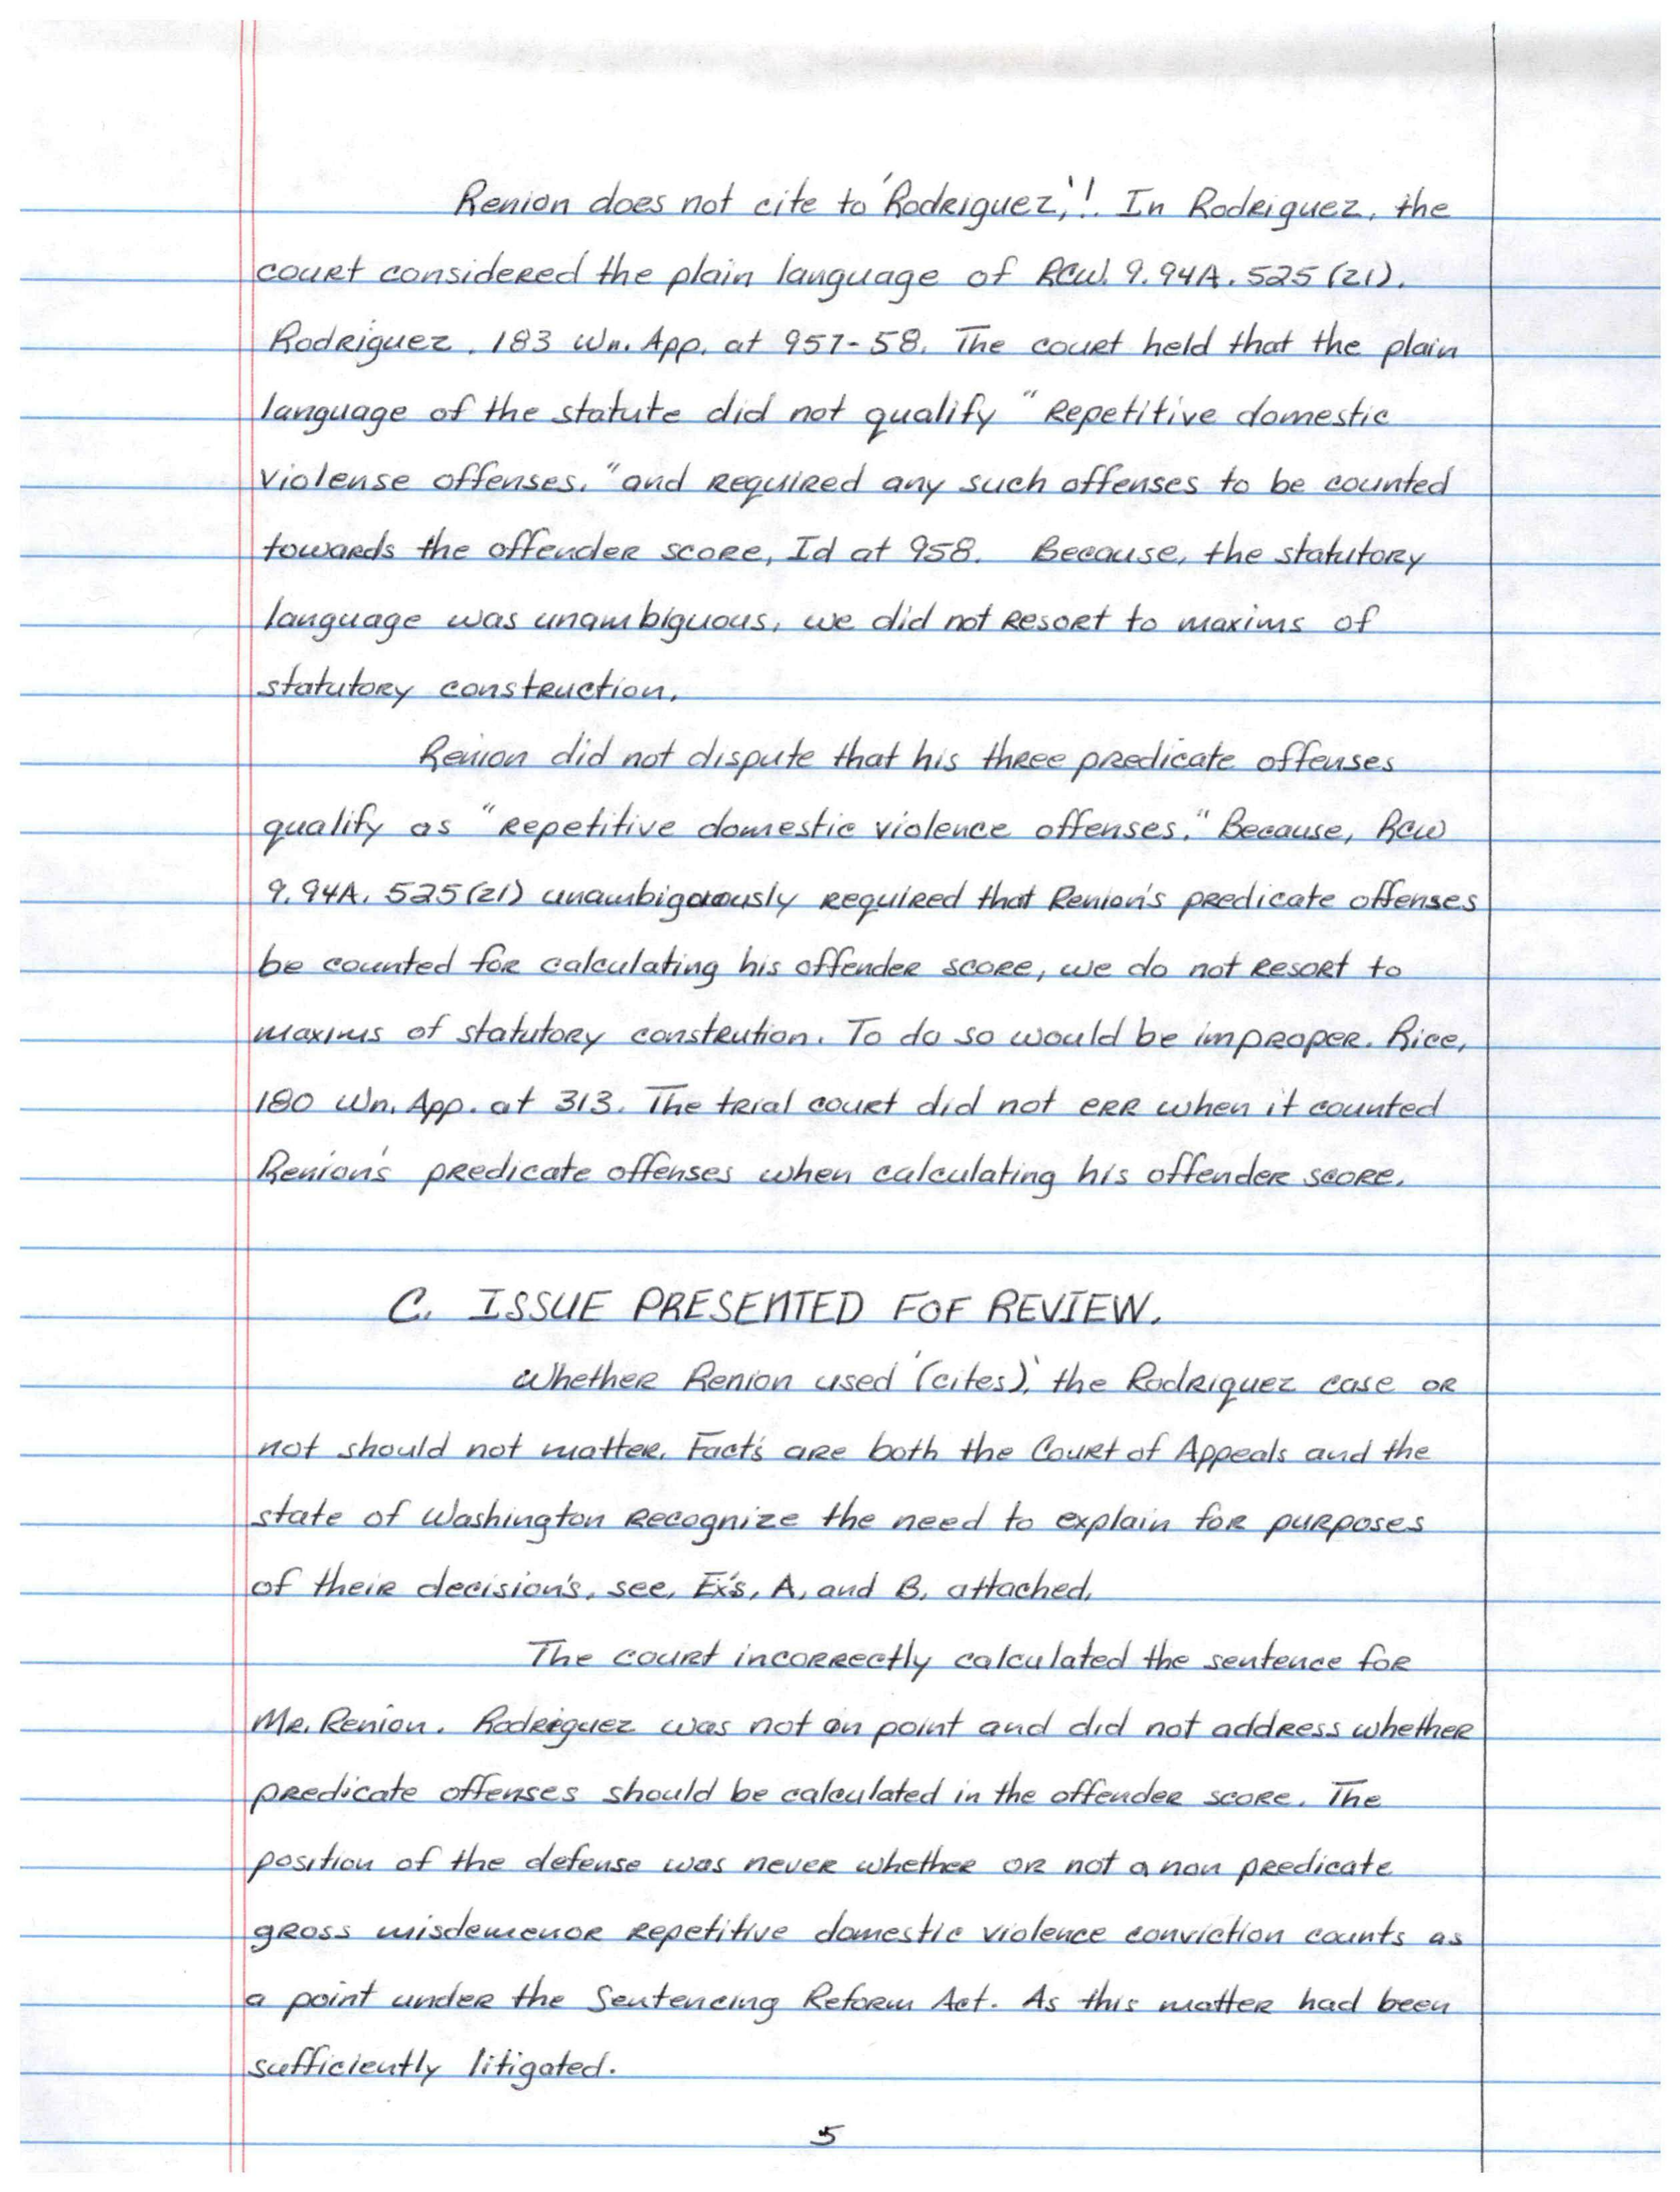 Renion does not cite to 'Rodriguez,'!. In Rodriguez, the
court considered the plain language of RCW. 9.94A.525(21).
Rodriguez. 183 Wn. App. at 957-58. The court held that the plain
language of the statute did not qualify "Repetitive domestic
violense offenses," and required any such offenses to be counted
towards the offender score, Id at 958. Because, the statutory
language was unambiguous, we did not resort to maxims of
statutory construction.
Renion did not dispute that his three predicate offenses
qualify as "repetitive domestic violence offenses." Because, RCW
9.94A.525(21) unambigouously required that Renion's predicate offenses
be counted for calculating his offender score, we do not resort to
maxims of statutory constrution. To do so would be improper. Rice,
180 Wn. App. at 313. The trial court did not err when it counted
Renion's predicate offenses when calculating his offender score.
C. ISSUE PRESENTED FOF REVIEW.
Whether Renion used '(cites)', the Rodriguez case or
not should not matter. Fact's are both the Court of Appeals and the
state of Washington recognize the need to explain for purposes
of their decision's, see, Ex's, A, and B, attached.
The court incorrectly calculated the sentence for
Mr. Renion. Rodriguez was not on point and did not address whether
predicate offenses should be calculated in the offender score. The
position of the defense was never whether or not a non predicate
gross misdemenor repetitive domestic violence conviction counts as
a point under the Sentencing Reform Act. As this matter had been
sufficiently litigated.
5